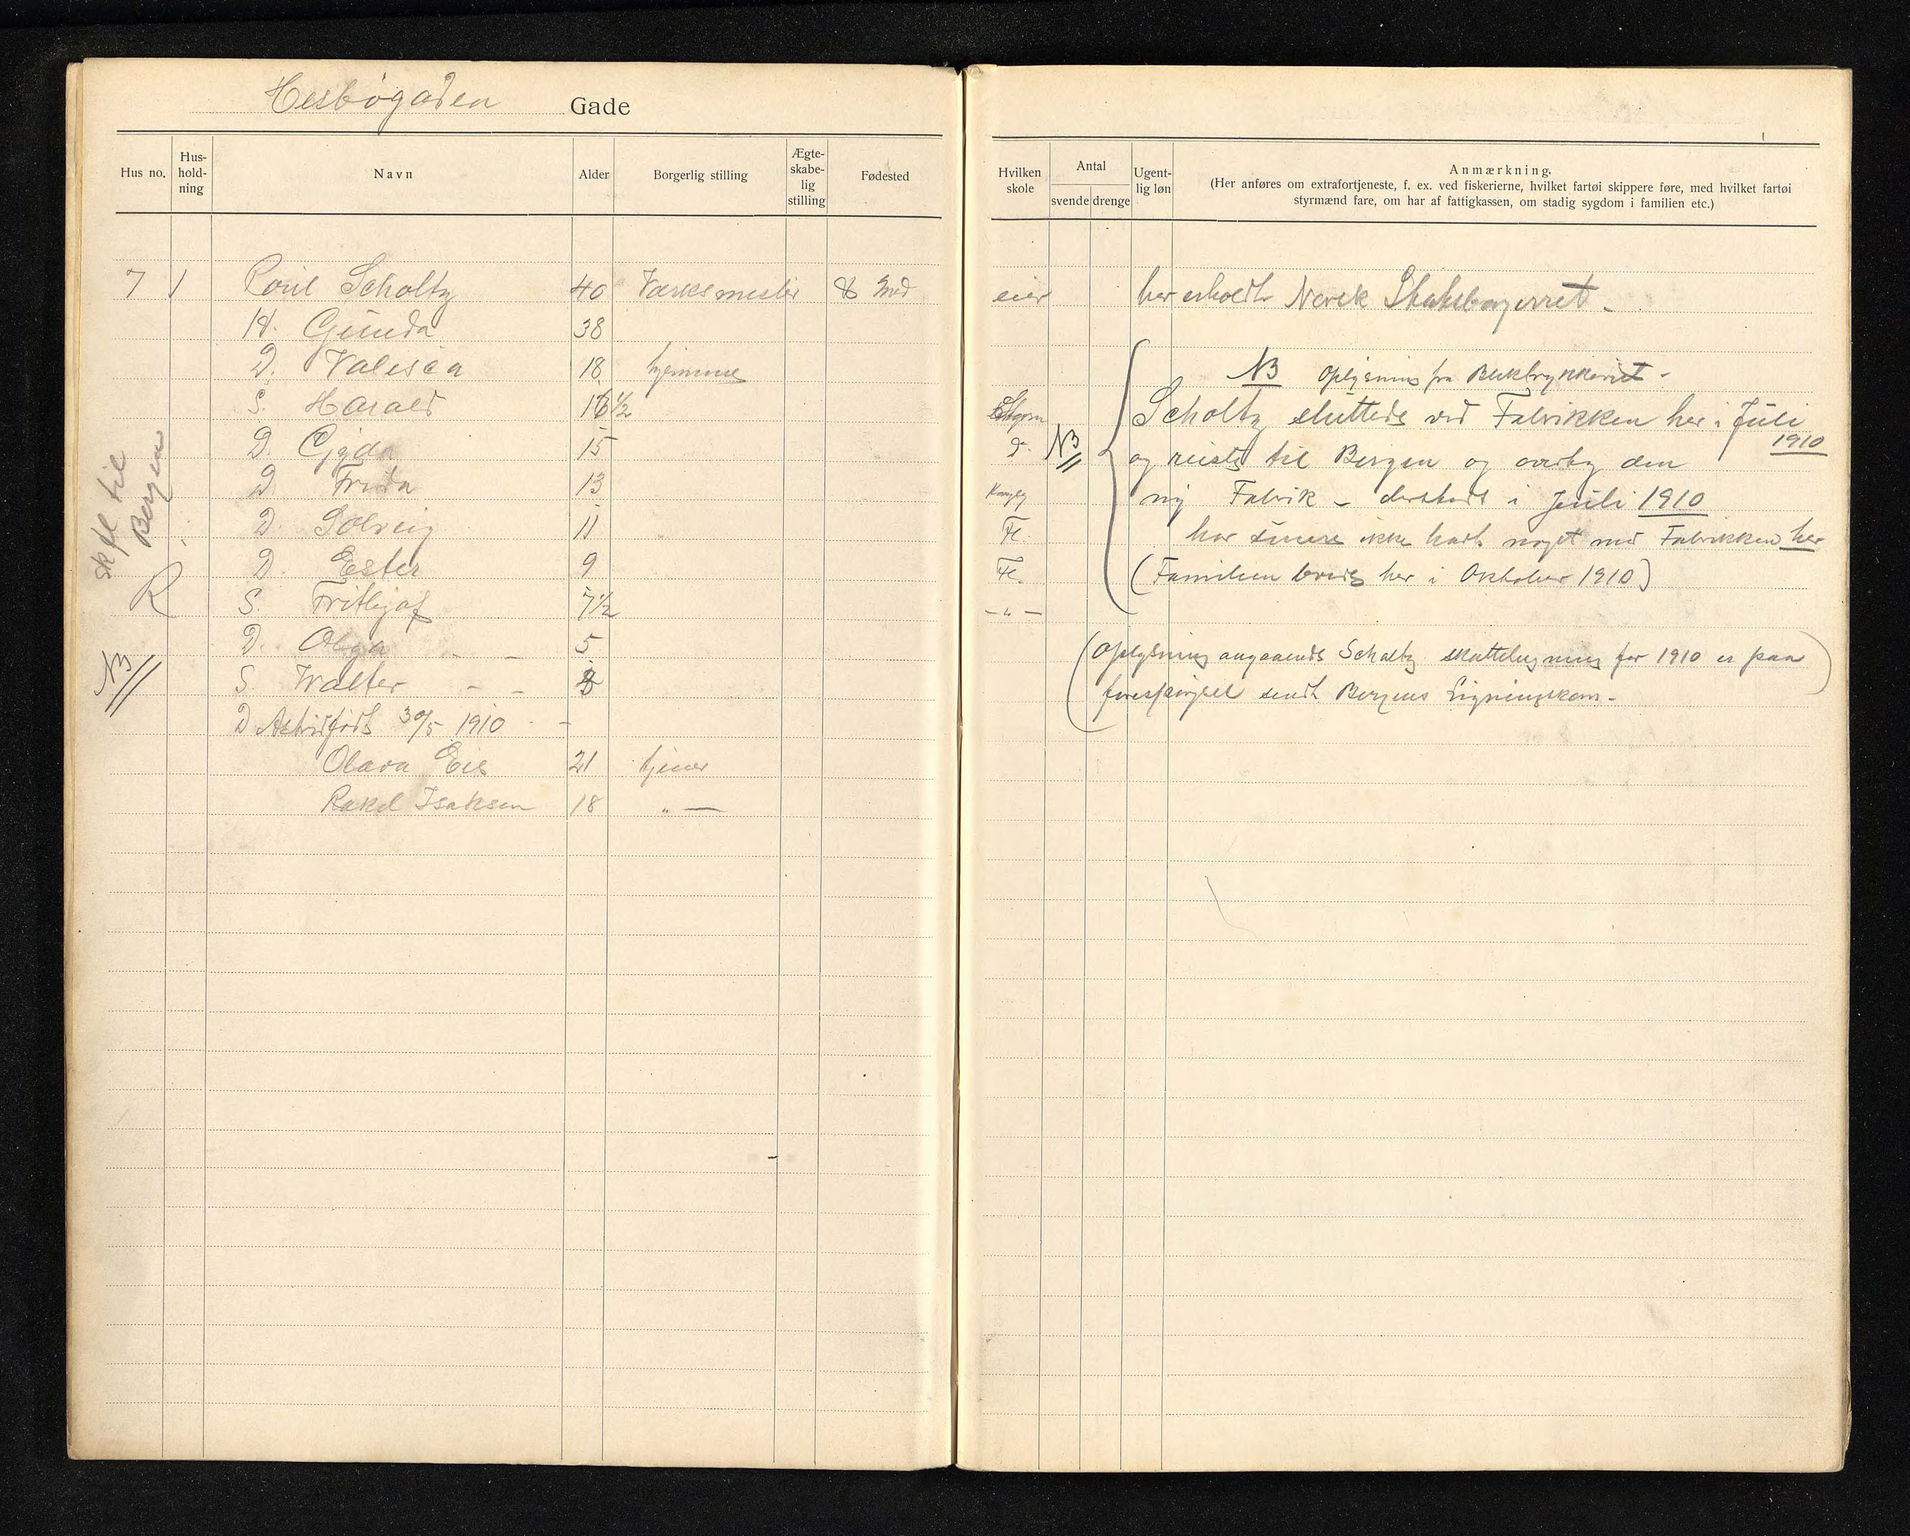 Hesbøgaden Gade
Hus no. Hus-hold-ning Navn Alder Borgerlig stilling Ægte-skabe-lig stilling Fødested
7 1 Poul Scholtz 40 Værksmester
H. Gunda 38
D. Valesca 18 hjemme
S. Harald 16 1/2
D. Gyda 15
D. Frida 13
D. Solveig 11
D. Ester 9
S. Frithjof 7 1/2
D. Olga 5
S. Walter
D Astrid født 30/5 1910
Olava Eie 21 tjener
Rakel Isaksen 18 " —
til
Bergen
R
NB
Hvilken skole Antal svende drenge Ugent-lig løn Anmærkning.
(Her anføres om extrafortjeneste, f. ex. ved fiskerierne, hvilket fartøi skippere føre, med hvilket fartøi
styrmænd fare, om har af fattigkassen, om stadig sygdom i familien etc.)
eier har erholdt Norsk Statsborgerret -
NB Oplysning fra Bliktrykkeriet -
Scholtz sluttede ved Fabrikken her i Juli
1910
NB
og reiste til Bergen og overtog den
ny Fabrik - dersteds i Juli 1910
Fl. har senere ikke havt noget med Fabrikken her
Fl. (Familien boede her i Oktober 1910)
— " —
(Oplysning angaaende Scholtz skatteligning for 1910 er paa
forespørgsel sendt Bergens Ligningskom-)